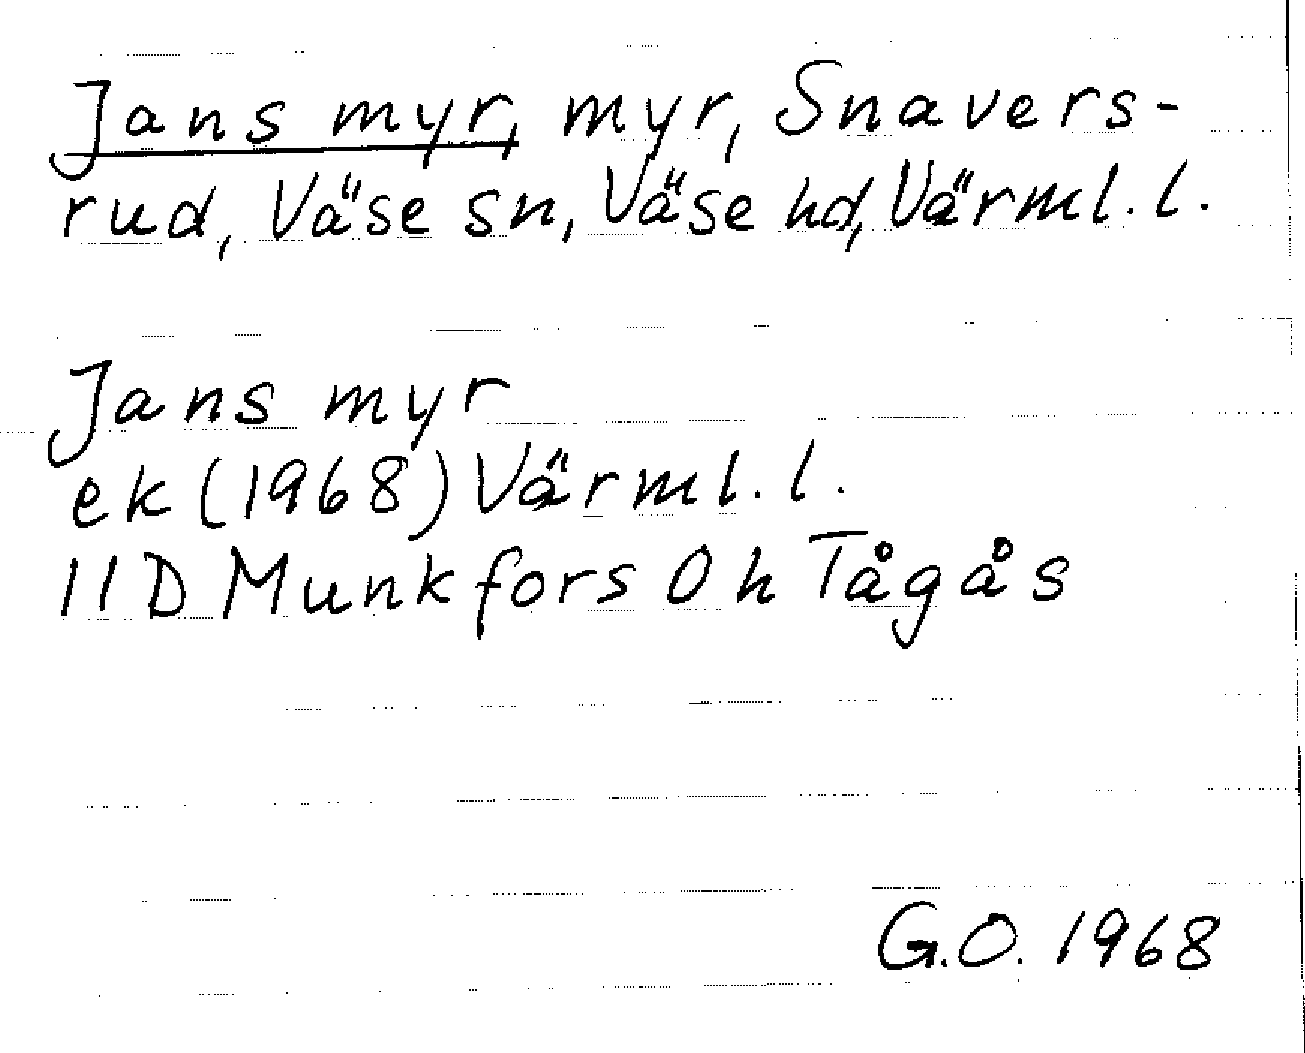 Jans myr, myr, Snavers-
rud, Väse sn, Väse hd, Värml. l.
Jans myr
ek (1968) Värml. l.
11D Munkfors 0 h Tågås
G.O. 1968